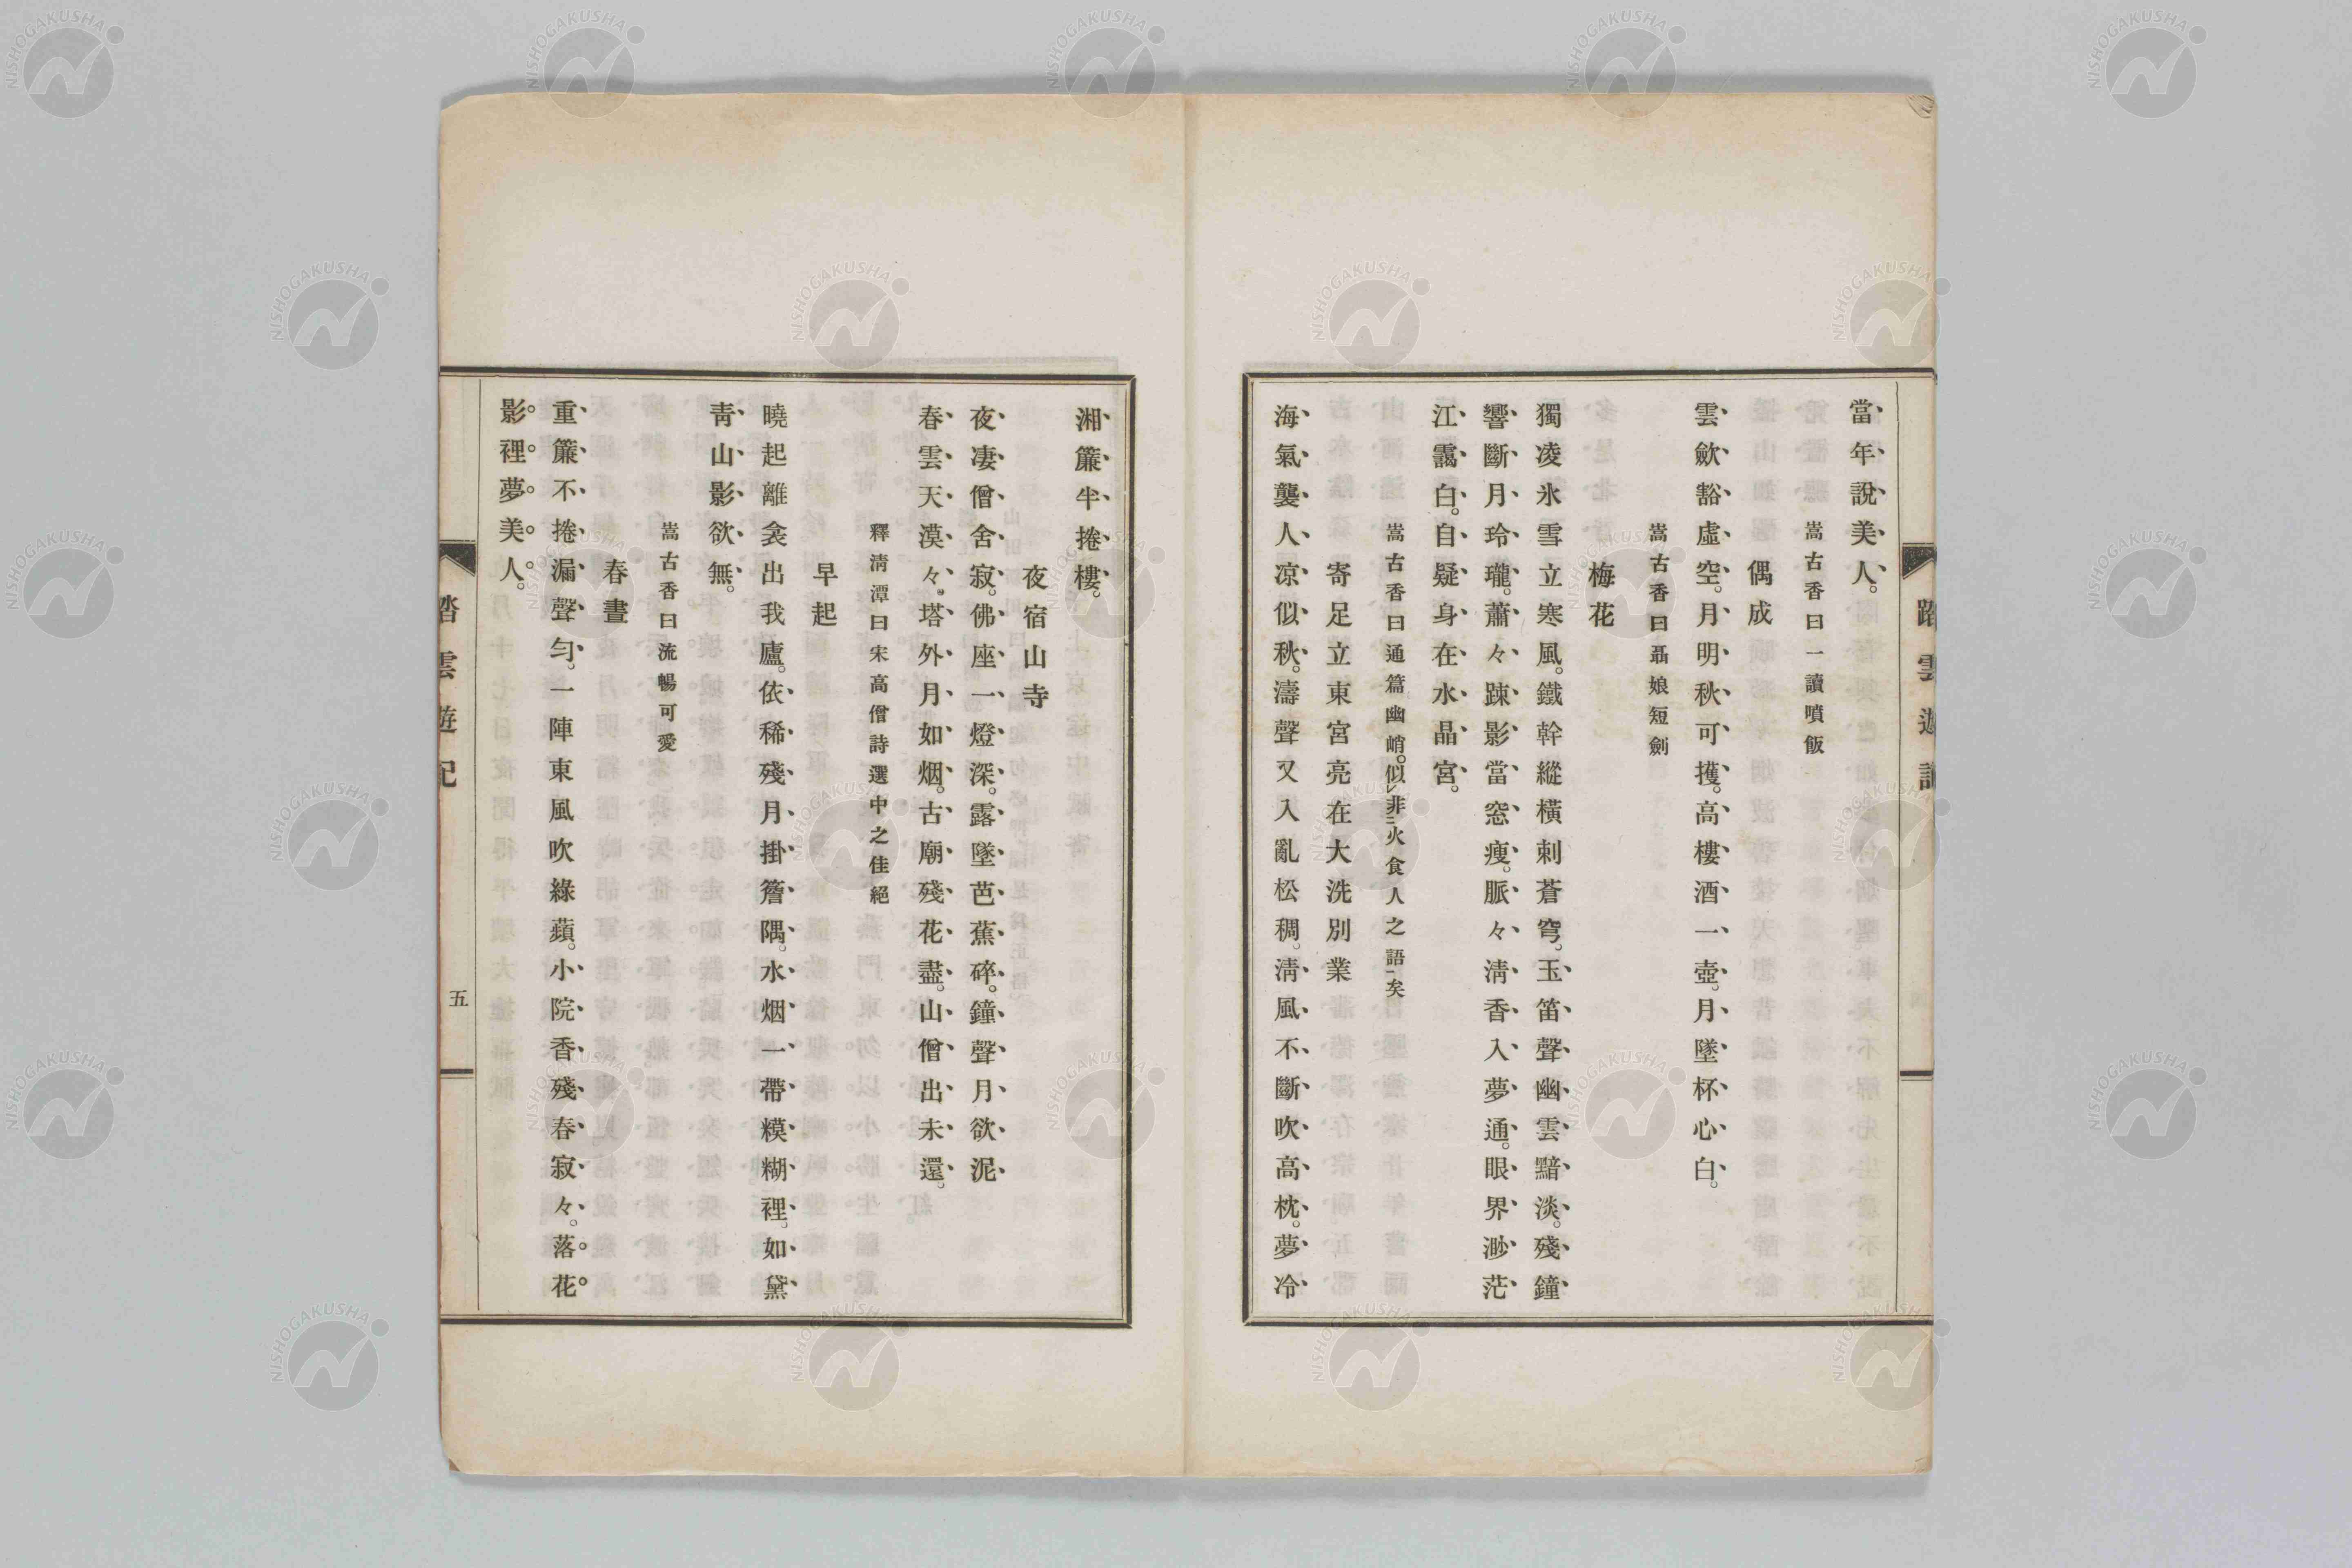 當年說美人。
嵩古香曰一讀噴飯
偶成
雲歛豁虛空。月明秋可擭。高樓酒一壺。月墜杯心白。
嵩古香曰聶娘短劍
梅花
獨凌氷雪立寒風。鐵幹縱橫刺蒼穹。玉笛聲幽雲黯淡。殘鐘
響斷月玲瓏。蕭々踈影當窓瘦。脈々淸香入夢通。眼界渺茫
江靄白。自疑身在水晶宮。
嵩古香曰通篇幽峭。似非火食人之語矣
寄足立東宮亮在大洗別業
海氣襲人凉似秋。濤聲又入亂松稠。淸風不斷吹高枕。夢冷
踏雲遊記
湘簾半捲樓。
夜宿山寺
夜凄僧舍寂。佛座一燈深。露墜芭蕉碎。鐘聲月欲泥
春雲天漠々。塔外月如烟。古廟殘花盡。山僧出未還。
釋淸潭曰宋高僧詩選中之佳絕
早起
曉起離衾出我廬。依稀殘月掛簷隅。水烟一帶糢糊裡。如黛
靑山影欲無。
嵩古香曰流暢可愛
春晝
重簾不捲漏聲勻。一陣東風吹綠蘋。小院香殘春寂々。落花
影裡夢美人。
踏雲遊記
五
NISHOGAKUSHA